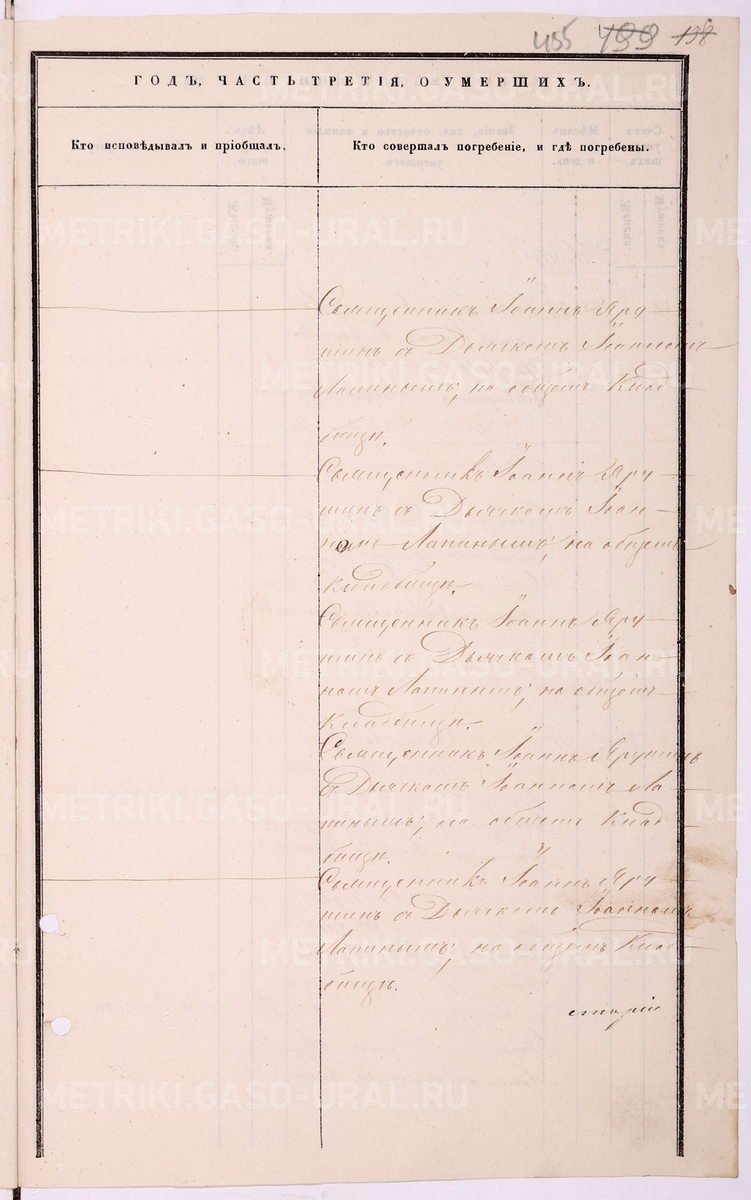 455 499 138
ГОДЪ, ЧАСТЬ ТРЕТІЯ, О УМЕРШИХЪ.
Кто исповѣдывалъ и пріобщалъ.
Кто совершалъ погребеніе, и гдѣ погребены.
Священникъ Іоаннъ Яру-
шинъ съ Дьячкомъ Іоанномъ
Лапинымъ, на общемъ Клад-
бищѣ.
Священникъ Іоаннъ Яру-
шинъ съ Дьячкомъ Іоан-
номъ Лапинымъ, на общемъ
Кладбищѣ.
Священникъ Іоаннъ Яру-
шинъ съ Дьячкомъ Іоан-
номъ Лапинымъ, на общемъ
Кладбищѣ.
Священникъ Іоаннъ Ярушинъ
съ Дьячкомъ Іоанномъ Ла-
пинымъ, на общемъ Клад-
бищѣ.
Священникъ Іоаннъ Яру-
шинъ съ Дьячкомъ Іоанномъ
Лапинымъ, на общемъ Клад-
бищѣ.
METRIKI.GASO-URAL.RU